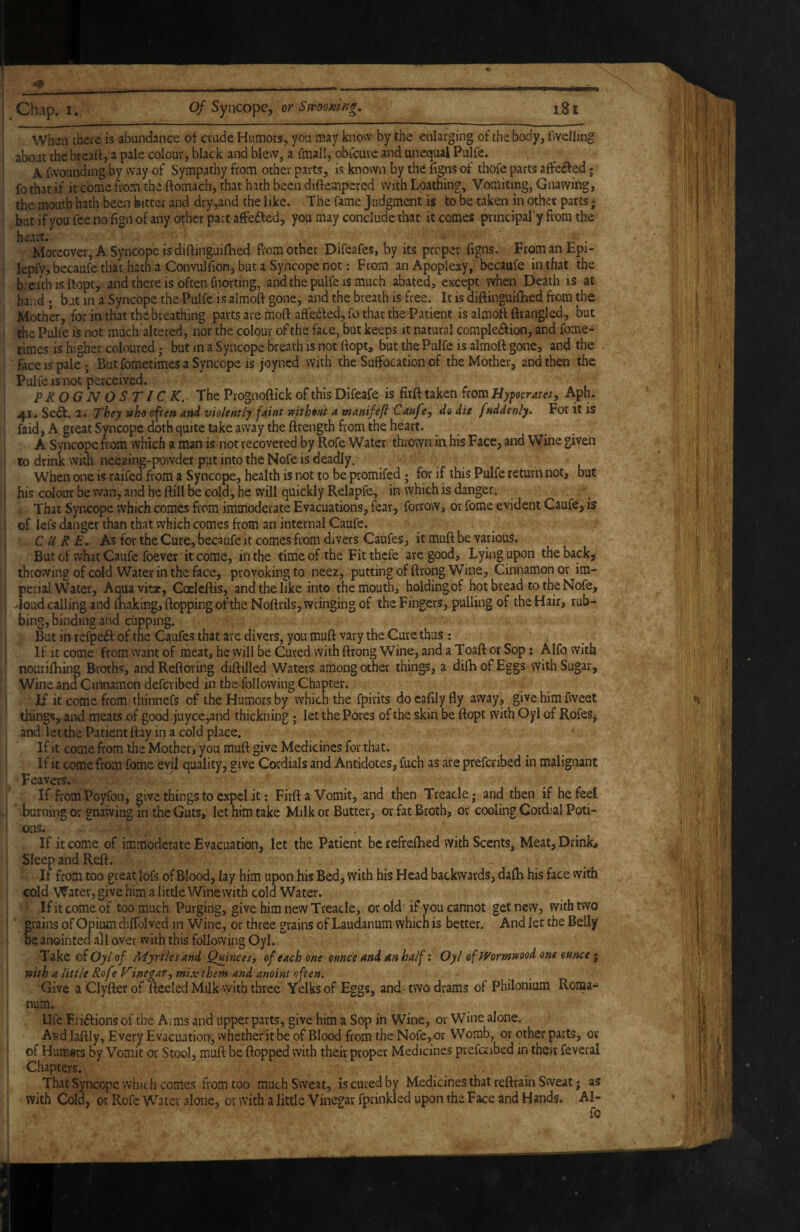 Chap. 1. Of Syncope, or Swooning. 181
When there is abundance of crude Humors, you may know by the enlarging of the body, ſwelling
about the breaſt, a pale colour, black and blew, a ſmall, obſcure and unequal Pulſe.
A ſwounding by way of Sympathy from other parts, is known by the ſigns of thoſe parts affected;
ſo that if it come from the ſtomach, that hath been diſtempered with Loathing, Vomiting, Gnawing,
the mouth hath been bitter and dry, and the like. The ſame Judgment is to be taken in other parts;
but if you ſee no ſign of any other part affected, you may conclude that it comes principal y from the
heart.
Moreover, A Syncope is diſtinguiſhed from other Diſeaſes, by its proper ſigns. From an Epi-
lepſy, becauſe that hath a Convulſion, but a Syncope not: From an Apoplexy, becauſe in that the
b eath is ſtopt, and there is often ſnorting, and the pulſe is much abated, except when Death is at
hand; but in a Syncope the Pulſe is almoſt gone, and the breath is free. It is diſtinguiſhed from the
Mother, for in that the breathing parts are moſt affected, ſo that the Patient is almoſt ſtrangled, but
the Pulſe is not much altered, nor the colour of the face, but keeps it natural complection, and ſome-
times is higher coloured; but in a Syncope breath is not ſtopt, but the Pulſe is almoſt gone, and the
face is pale; But ſometimes a Syncope is joyned with the Suffocation of the Mother, and then the
Pulſe is not perceived.
PROGNOSTICK. The Prognoſtick of this Diſeaſe is firſt taken from Hypocrates, Aph.
41. Sect. 2. They who often and violently faint without a manifeſt Cauſe, do die ſuddenly. For it is
ſaid, A great Syncope doth quite take away the ſtrength from the heart.
A Syncope from which a man is not recovered by Roſe Water thrown in his Face, and Wine given
to drink with neezing-powder put into the Noſe is deadly.
When one is raiſed from a Syncope, health is not to be promiſed; for if this Pulſe return not, but
his colour be wan, and he ſtill be cold, he will quickly Relapſe, in which is danger.
That Syncope which comes from immoderate Evacuations, fear, ſorrow, or ſome evident Cauſe, is
of leſs danger than that which comes from an internal Cauſe.
CURE. As for the Cure, becauſe it comes from divers Cauſes, it muſt be various.
But of what Cauſe ſoever it come, in the time of the Fit theſe are good, Lying upon the back,
throwing of cold Water in the face, provoking to neez, putting of ſtrong Wine, Cinnamon or im-
perial Water, Aqua vitæ, Cœleſtis, and the like into the mouth, holding of hot bread to the Noſe,
loud calling and ſhaking, ſtopping of the Noſtrils, wringing of the Fingers, pulling of the Hair, rub-
bing, binding and cupping.
But in reſpect of the Cauſes that are divers, you muſt vary the Cure thus:
If it come from want of meat, he will be Cured with ſtrong Wine, and a Toaſt or Sop: Alſo with
nouriſhing Broths, and Reſtoring diſtilled Waters among other things, a diſh of Eggs with Sugar,
Wine and Cinnamon deſcribed in the following Chapter.
If it come from thinneſs of the Humors by which the ſpirits do eaſily fly away, give him ſweet
things, and meats of good juyce, and thickning; let the Pores of the skin be ſtopt with Oyl of Roſes,
and let the Patient ſtay in a cold place.
If it come from the Mother, you muſt give Medicines for that.
If it come from ſome evil quality, give Cordials and Antidotes, ſuch as are preſcribed in malignant
Feavers.
If from Poyſon, give things to expel it: Firſt a Vomit, and then Treacle; and then if he feel
burning or gnawing in the Guts, let him take Milk or Butter, or fat Broth, or cooling Cordial Poti-
ons.
If it come of immoderate Evacuation, let the Patient be refreſhed with Scents, Meat, Drink,
Sleep and Reſt.
If from too great loſs of Blood, lay him upon his Bed, with his Head backwards, daſh his face with
cold Water, give him a little Wine with cold Water.
If it come of too much Purging, give him new Treacle, or old if you cannot get new, with two
grains of Opium diſſolved in Wine, or three grains of Laudanum which is better. And let the Belly
be anointed all over with this following Oyl.
Take of Oyl of Myrtles and Quinces, of each one ounce and an half: Oyl of Wormwood one ounce;
with a little Roſe Vinegar, mix them and anoint often.
Give a Clyſter of ſteeled Milk with three Yelks of Eggs, and two drams of Philonium Roma-
num.
Uſe Frictions of the Arms and upper parts, give him a Sop in Wine, or Wine alone.
And laſtly, Every Evacuation, whether it be of Blood from the Noſe, or Womb, or other parts, or
of Humors by Vomit or Stool, muſt be ſtopped with their proper Medicines preſcribed in their ſeveral
Chapters.
That Syncope which comes from too much Sweat, is cured by Medicines that reſtrain Sweat; as
with Cold, or Roſe Water alone, or with a little Vinegar ſprinkled upon the Face and Hands. Al-
ſo